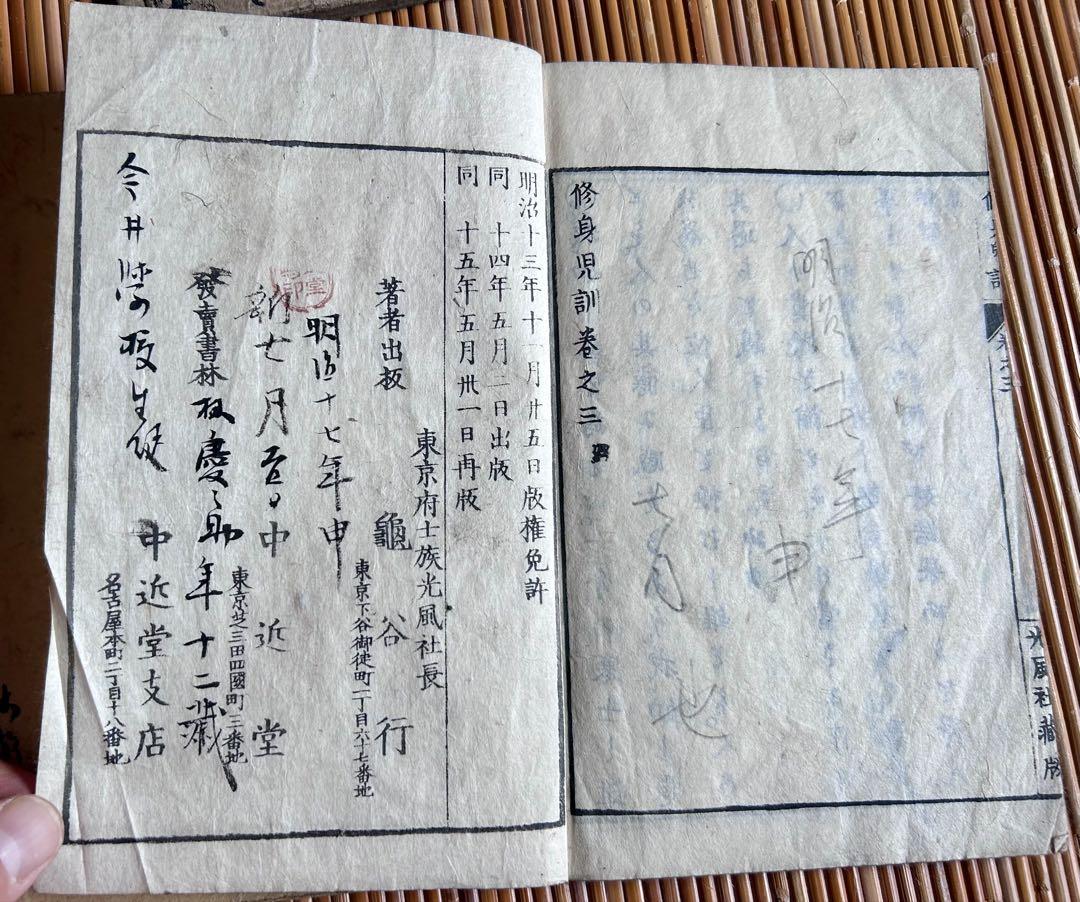 修身児訓巻之三
明治十七年
申
七月
也
光風社蔵版
明治十三年十一月廿五日版権免許
同 十四年五月二日出版
同 十五年五月卅一日再版
東京府士族光風社長
著者出版 龜谷行
東京下谷御徒町一丁目六十七番地
明治十七年申
七月
中近堂
東京芝三田四國町三番地
發賣書林
慶之助
年十二歳
中近堂支店
名古屋本町二丁目十八番地
今井